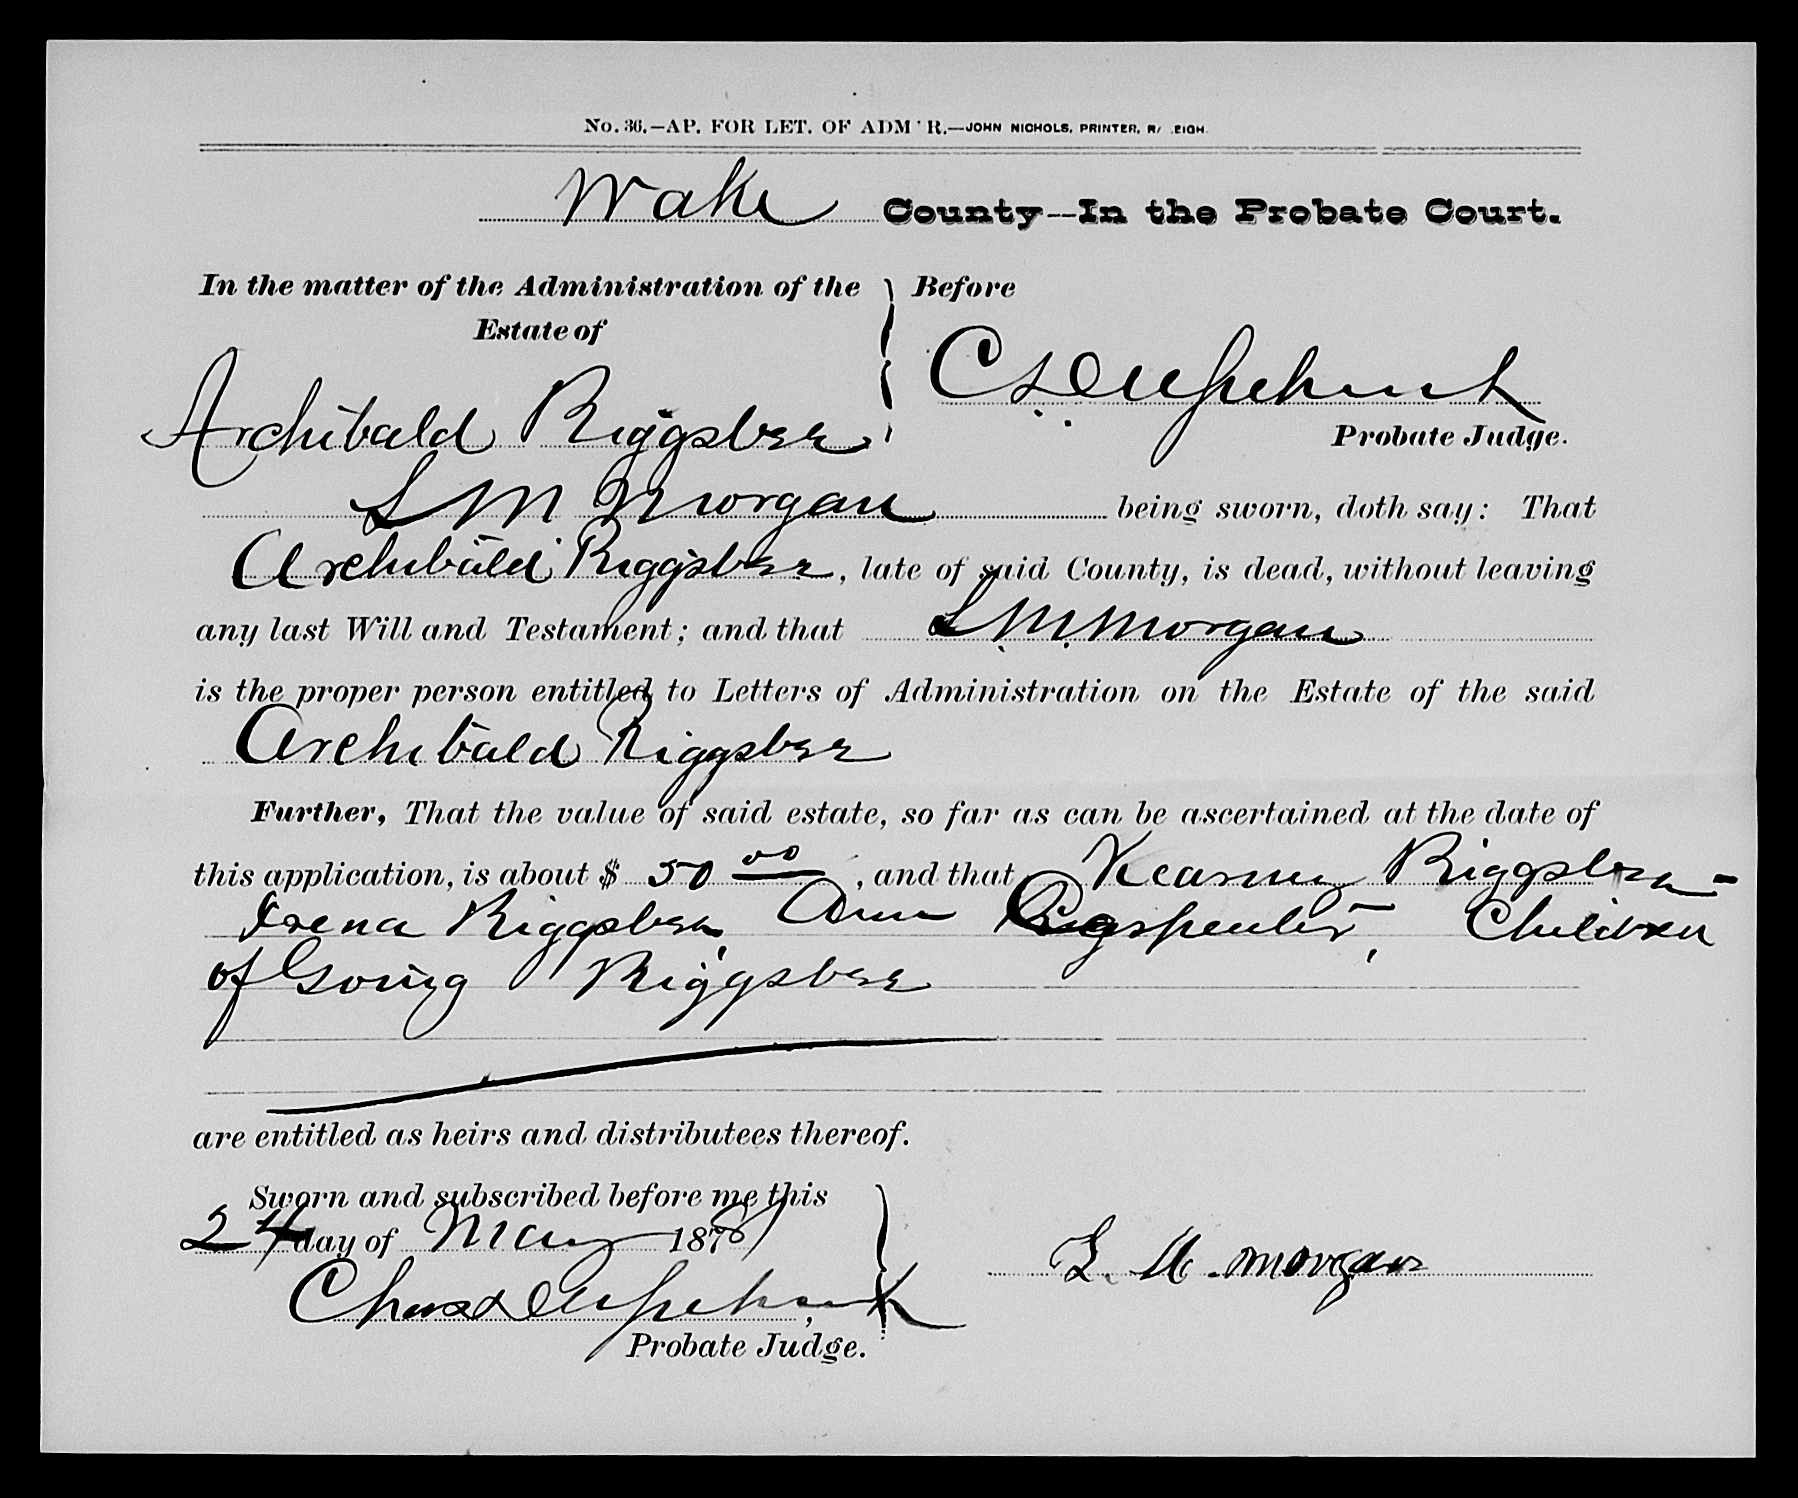 No. 36.—AP. FOR LET. OF ADM'R.—JOHN NICHOLS, PRINTER, R EIGH.
Wake County—In the Probate Court.
In the matter of the Administration of the
Estate of
Archibald Riggsbee
Before
C. D. Upchurch
Probate Judge.
L M Morgan being sworn, doth say: That
Archibald Riggsbee, late of said County, is dead, without leaving
any last Will and Testament; and that L. M. Morgan
is the proper person entitled to Letters of Administration on the Estate of the said
Archibald Riggsbee
Further, That the value of said estate, so far as can be ascertained at the date of
this application, is about $ 50 00, and that Kearney Riggsbee-
Irena Riggsbee, Ann Children
of Going Riggsbee
are entitled as heirs and distributees thereof.
Sworn and subscribed before me this
24 day of May 1878
Chas D Upchurch
Probate Judge.
L. M. Morgan